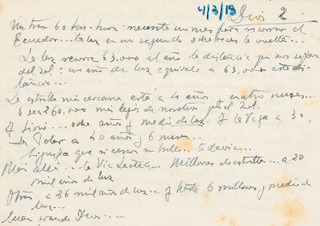 4/3/13
Dios 2
Un tren 60 km. hora: necesita un mes para recorrer el
Ecuador... la luz en un segundo 8 veces la vuelta...
La luz recorre 63,000 al año la distancia que nos separa
del sol: un año de luz equivale a 63,000
La estrella más cercana está a 4 años cuatro meses...
260,000 más lejos de nosotros que el Sol.
A Sirio... ocho años y medio de luz. A la Vega a 30-
La Polar a 40 años y 6 meses...
si cesara su brillo... todavía...
Más allá... la Vía Láctea... Millones de estrellas... a 20
mil años de luz
Otras a 36 mil años de luz... y hasta 6 millones y medio de
luz...
Cuan grande Dios...